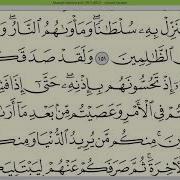 نَزِّلْ بِهِۦ سُلْطَٰنًا ۖ وَمَأْوَىٰهُمُ ٱلنَّارُ ۚ وَ
ٱلظَّٰلِمِينَ ١٥١ وَلَقَدْ صَدَقَكُ
إِذْ تَحُسُّونَهُم بِإِذْنِهِۦ ۖ حَتَّىٰٓ إِذَا فَشِ
تُمْ فِى ٱلْأَمْرِ وَعَصَيْتُم مِّنۢ بَعْدِ مَآ أَرَ
مِنكُم مَّن يُرِيدُ ٱلدُّنْيَا وَمِن
ٱلْءَاخِرَةَ ۚ ثُمَّ صَرَفَكُمْ عَنْهُمْ لِيَبْتَلِيَ